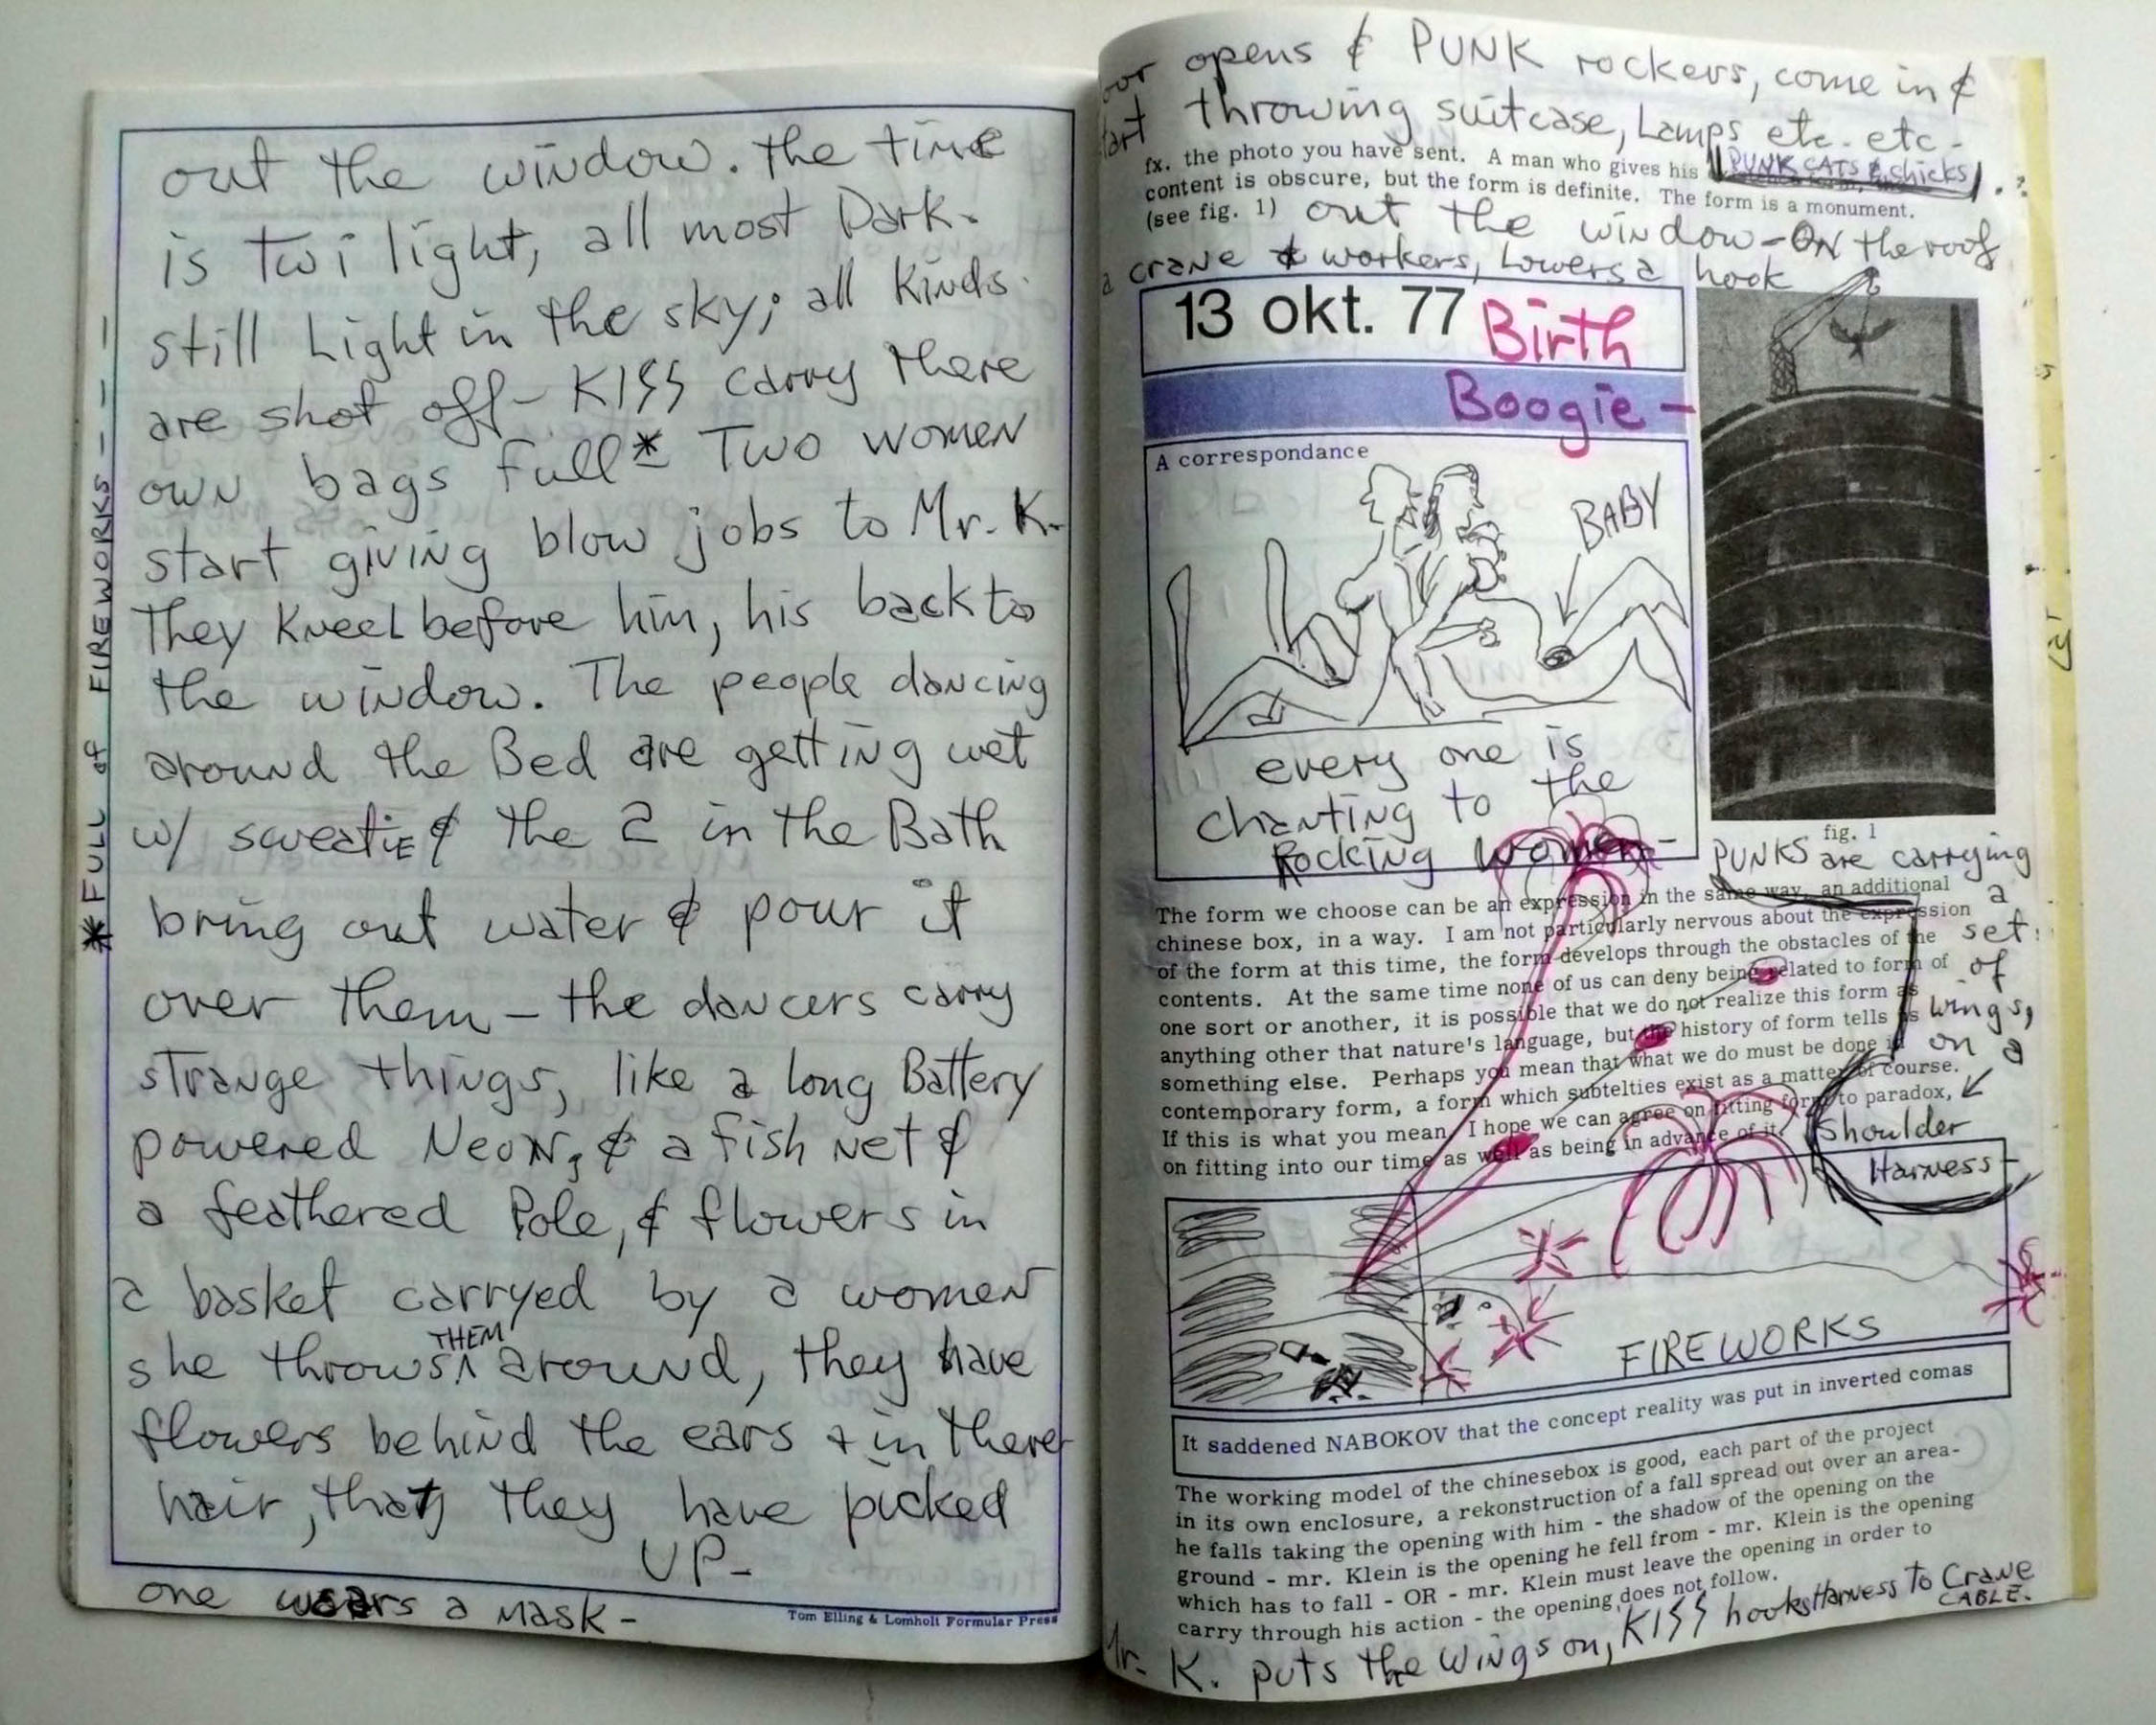 out the window. the time
is twilight, all most Dark.
still Light in the sky; all Kinds
are shot off - KISS carry there
own bags full * Two women
start giving blow jobs to Mr. K.
They Kneel before him, his back to
the window. The people dancing
around the Bed are getting wet
w/ sweat & the 2 in the Bath
bring out water & pour it
over them - the dancers carry
strange things, like a long Battery
powered Neon, & a fish net &
a feathered Pole, & flowers in
a basket carryed by a women
she throws THEM around, they have
flowers behind the ears + in there
hair, that they have picked
UP -
one wears a mask -
* FULL of FIREWORKS - - - -
Tom Elling & Lomholt Formular Press
opens & PUNK rockers, come in &
throwing suitcase, Lamps etc. etc -
fx. the photo you have sent. A man who gives his PUNK CATS & chicks
content is obscure, but the form is definite. The form is a monument.
(see fig. 1) out the window - ON the roof
a crane & workers, Lowers a hook
13 okt. 77 Birth
Boogie -
A correspondance
BABY
every one is
chanting to the
Rocking Women -
fig. 1
PUNKS are carrying
a
set
of
wings,
on a
shoulder
Harness -
The form we choose can be an expression in the same way, an additional
chinese box, in a way. I am not particularly nervous about the expression
of the form at this time, the form develops through the obstacles of the
contents. At the same time none of us can deny being related to form of
one sort or another, it is possible that we do not realize this form as
anything other that nature's language, but the history of form tells us
something else. Perhaps you mean that what we do must be done in
contemporary form, a form which subtelties exist as a matter of course.
If this is what you mean, I hope we can agree on fitting form to paradox,
on fitting into our time as well as being in advance of it.
FIREWORKS
It saddened NABOKOV that the concept reality was put in inverted comas
The working model of the chinesebox is good, each part of the project
in its own enclosure, a rekonstruction of a fall spread out over an area-
he falls taking the opening with him - the shadow of the opening on the
ground - mr. Klein is the opening he fell from - mr. Klein is the opening
which has to fall - OR - mr. Klein must leave the opening in order to
carry through his action - the opening does not follow.
Mr. K. puts the wings on, KISS hooks Harness to Crane
CABLE.